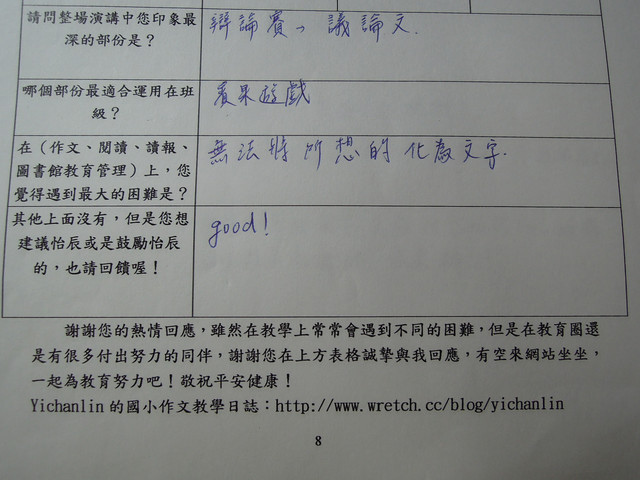 請問整場演講中您印象最
深的部份是？
辯論賽、議論文.
哪個部份最適合運用在班
級？
賓果遊戲
在（作文、閱讀、讀報、
圖書館教育管理）上，您
覺得遇到最大的困難是？
無法將所想的化為文字.
其他上面沒有，但是您想
建議怡辰或是鼓勵怡辰
的，也請回饋喔！
good!
謝謝您的熱情回應，雖然在教學上常常會遇到不同的困難，但是在教育圈還
是有很多付出努力的同伴，謝謝您在上方表格誠摯與我回應，有空來網站坐坐，
一起為教育努力吧！敬祝平安健康！
Yichanlin 的國小作文教學日誌：http://www.wretch.cc/blog/yichanlin
8